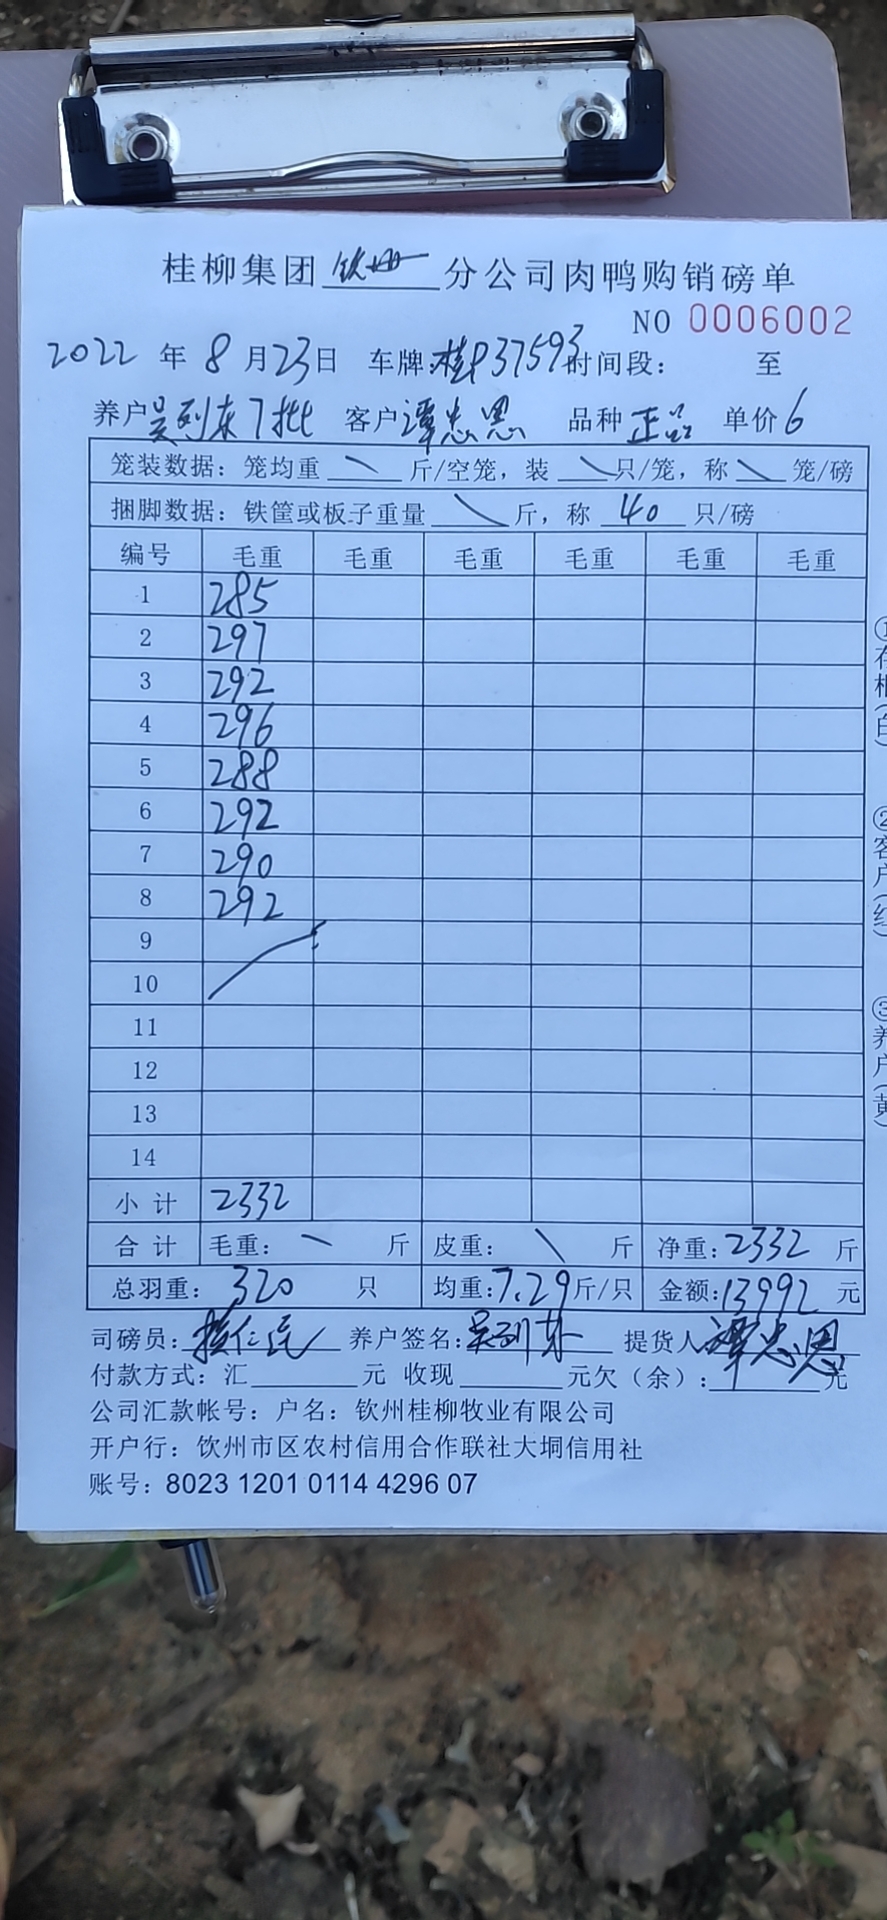 桂柳集团 钦州 分公司肉鸭购销磅单
NO 0006002
2022 年 8 月 23 日 车牌:桂P37593 时间段: 至
养户 吴列东7批 客户 谭忠恩 品种 正品 单价 6
笼装数据: 笼均重 \ 斤/空笼, 装 \ 只/笼, 称 \ 笼/磅
捆脚数据: 铁筐或板子重量 \ 斤, 称 40 只/磅
编号 毛重 毛重 毛重 毛重 毛重 毛重
1 285
2 297
3 292
4 296
5 288
6 292
7 290
8 292
9
10
11
12
13
14
小计 2332
合计 毛重: \ 斤 皮重: \ 斤 净重: 2332 斤
总羽重: 320 只 均重: 7.29 斤/只 金额: 13992 元
司磅员: 养户签名: 提货人 谭忠恩
付款方式: 汇 元 收现 元欠(余): 元
公司汇款帐号: 户名: 钦州桂柳牧业有限公司
开户行: 钦州市区农村信用合作联社大垌信用社
账号: 8023 1201 0114 4296 07
①存根(白)
②客户(红)
③养户(黄)